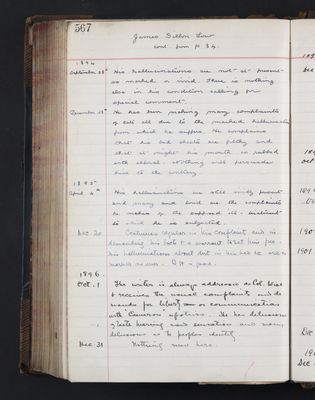 567
James Dillon Low
cont. from p 34.
1894
September 28th His hallucinations are not at present
so marked or vivid. There is nothing
else in his condition calling for
special comment.
December 18th He has been making many complaints
of late all due to the marked hallucinations
from which he suffers. He complains
that his bed sheets are filthy and
that at night his mouth is rubbed
with . Nothing will persuade
him to the contrary.
1895
April 4th His hallucinations are still very present
and many and loud are the complaints
he makes of the supposed ill-treatment
to which he is subjected.
Dec. 20 Continues regular in his complaint and is
demanding his boots & a warrant to set him free.
His hallucinations about dirt in his bed &c are as
marked as ever. G.H. is good.
1896.
Oct. 1 The writer is always addressed as Col.
& receives the usual complaints and de
mands for or communication
with 'Cameron' upstairs. He has delusions
of taste hearing and sensation and many
delusions as to peoples identity
Dec. 31 Nothing new here.